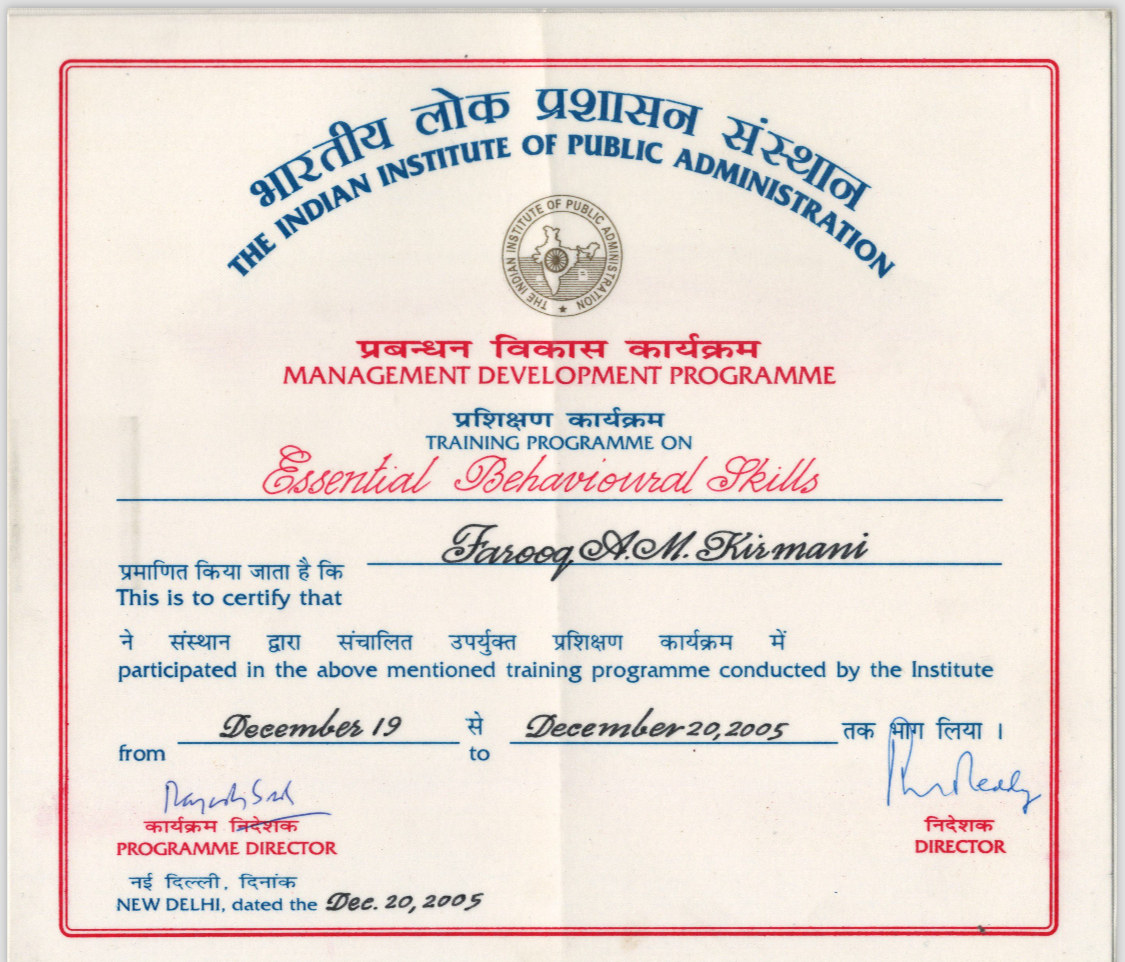 भारतीय लोक प्रशासन संस्थान
THE INDIAN INSTITUTE OF PUBLIC ADMINISTRATION
THE INDIAN INSTITUTE OF PUBLIC ADMINISTRATION
प्रबन्धन विकास कार्यक्रम
MANAGEMENT DEVELOPMENT PROGRAMME
प्रशिक्षण कार्यक्रम
TRAINING PROGRAMME ON
Essential Behavioural Skills
Farooq A.M. Kirmani
प्रमाणित किया जाता है कि
This is to certify that
ने संस्थान द्वारा संचालित उपर्युक्त प्रशिक्षण कार्यक्रम में
participated in the above mentioned training programme conducted by the Institute
December 19 से December 20, 2005 तक भाग लिया ।
from to
कार्यक्रम निदेशक
PROGRAMME DIRECTOR
निदेशक
DIRECTOR
नई दिल्ली, दिनांक
NEW DELHI, dated the Dec. 20, 2005